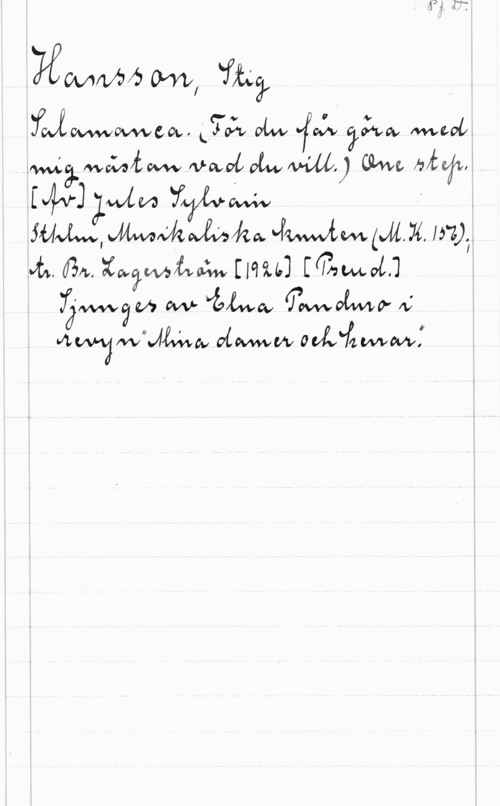 Pf. D.
Hansson, Stig
Salamanca. (För du får göra med
mig nästan vad du vill.) One step.
[Av] Jules Sylvain
Sthlm, Musikaliska knuten (M.K. 157);
tr. Br. Lagerström [1926] [Pseud.]
Sjunges av Elna Panduro i
revyn "Mina damer och herrar."